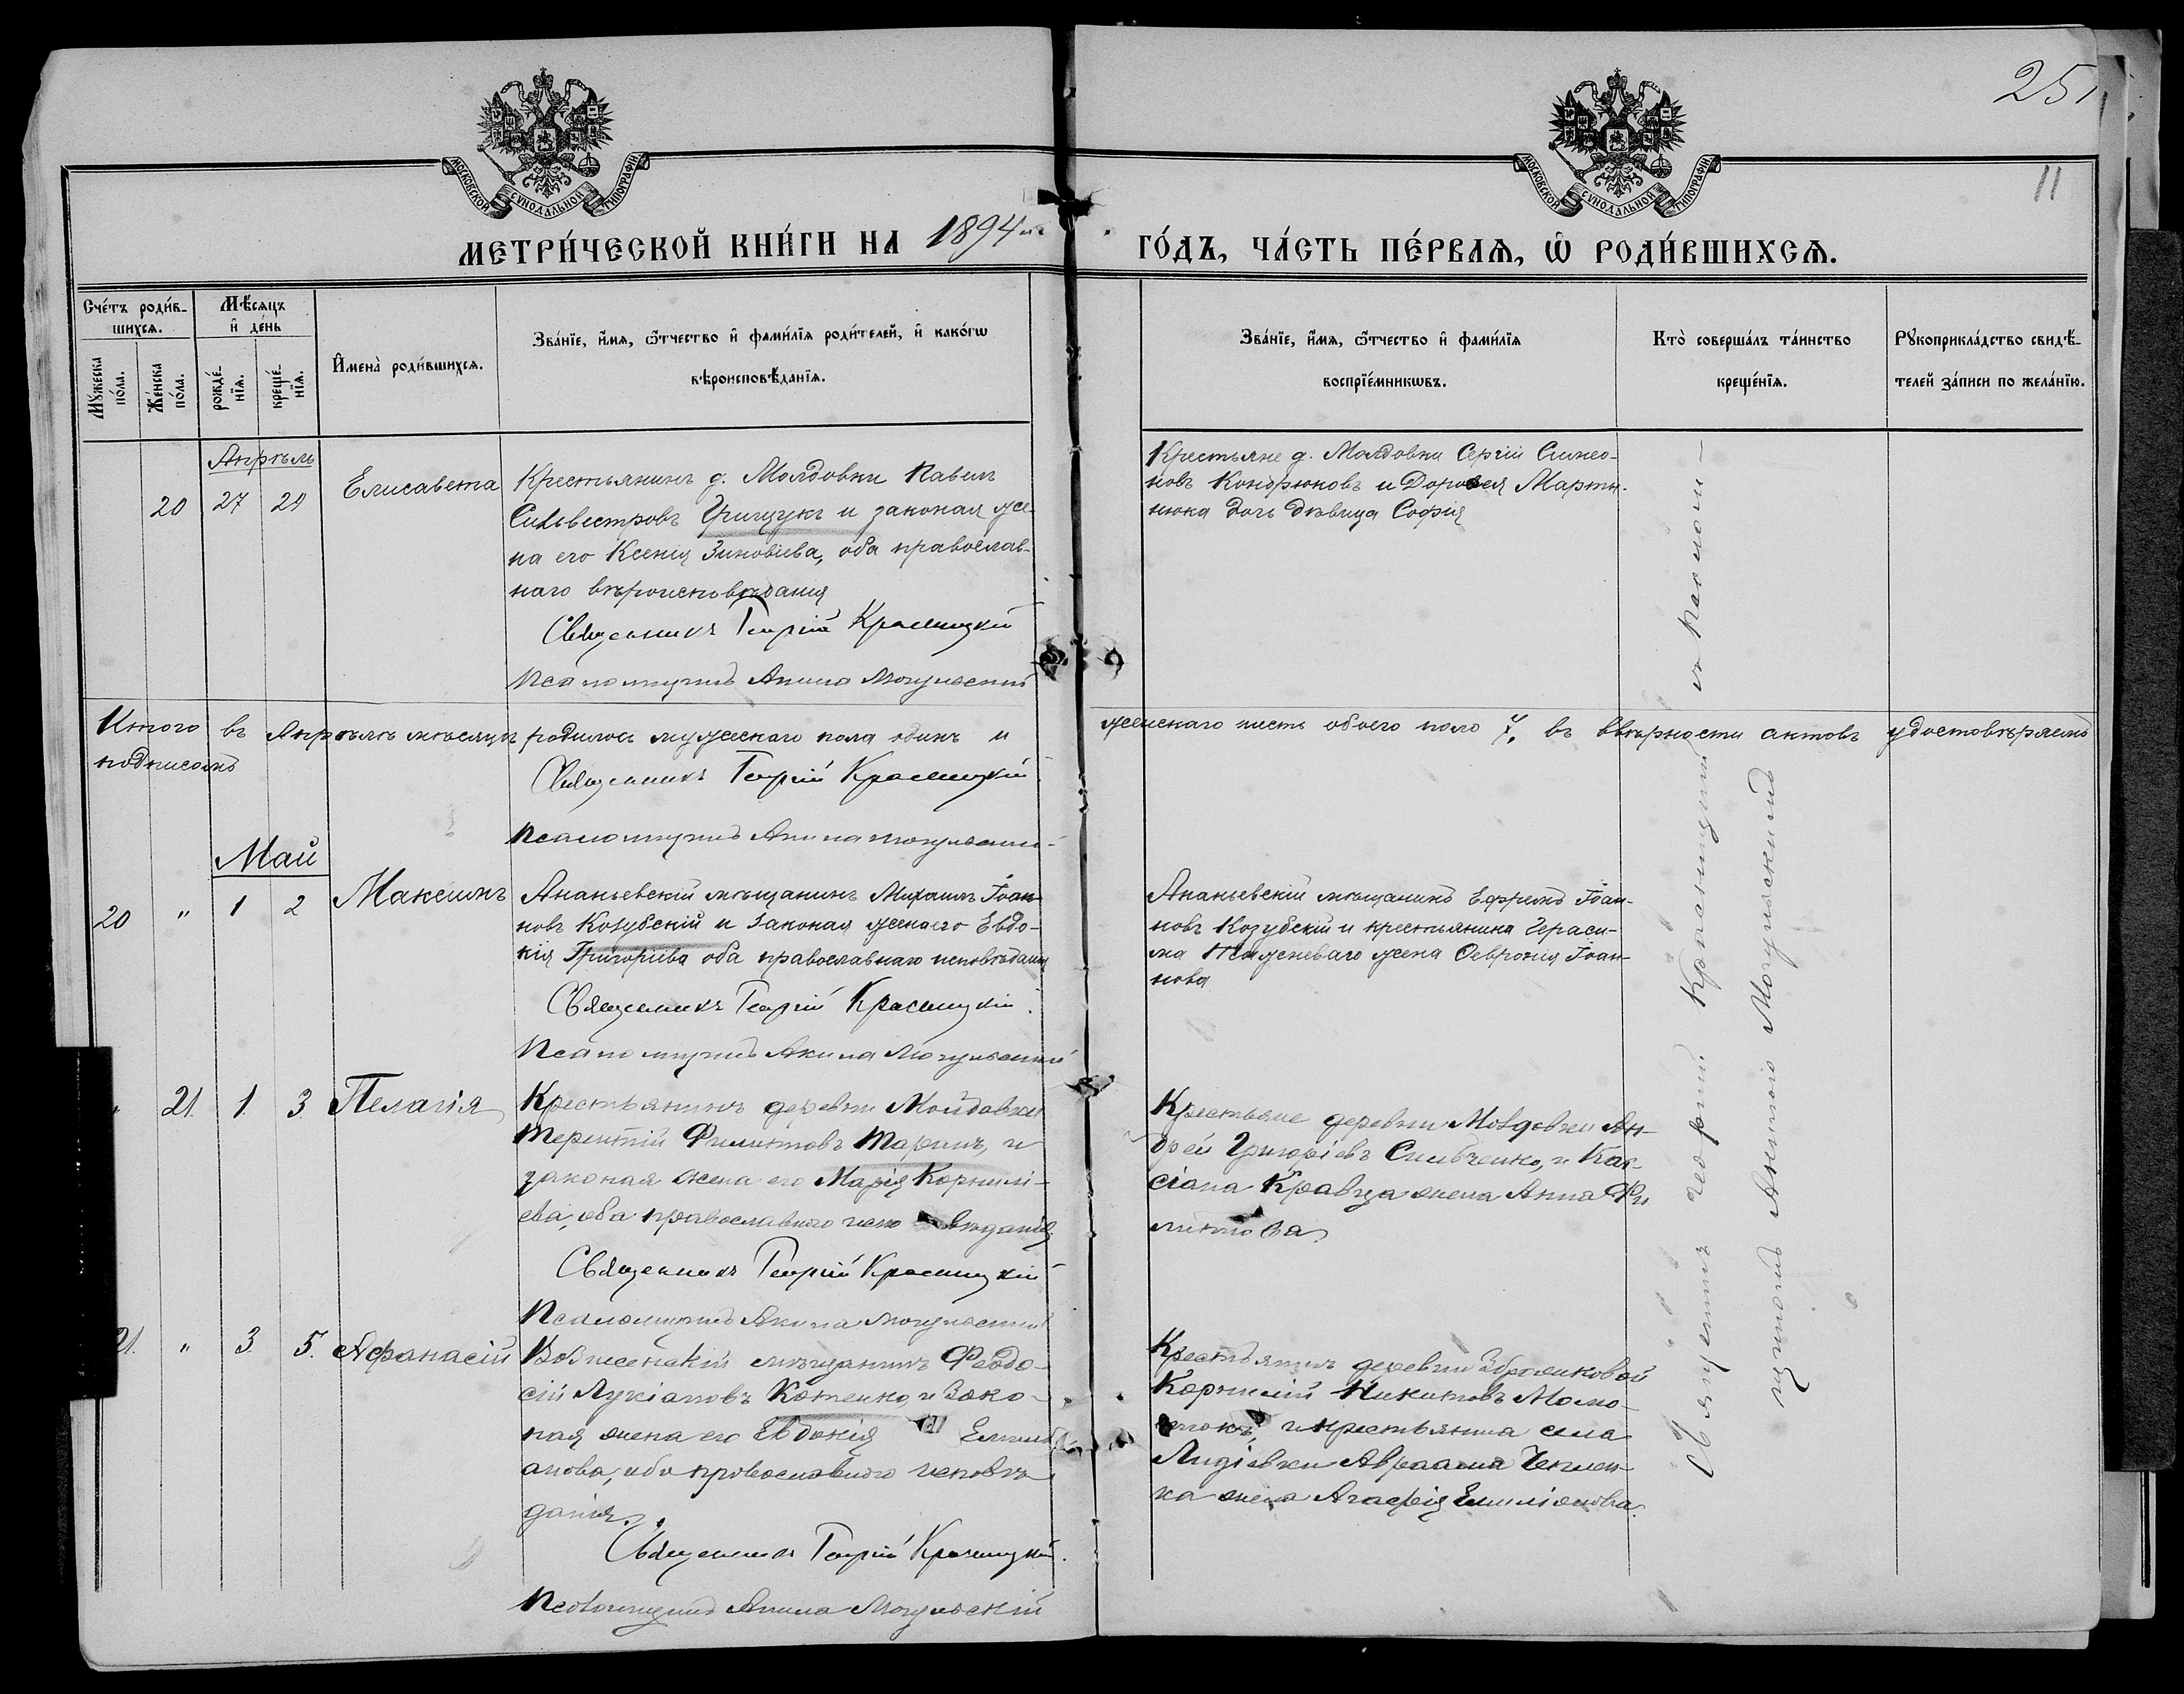 251
11
МОСКОВСКОЙ СѴНОДАЛЬНОЙ ТИПОГРАФІИ
МОСКОВСКОЙ СѴНОДАЛЬНОЙ ТИПОГРАФІИ
МЕТРИ́ЧЕСКОЙ КНИ́ГИ НА 1894 ГО́ДЪ, ЧА́СТЬ ПЕ́РВАѦ, Ѡ РОДИ́ВШИХСѦ.
Сче́тъ роди́в-
шихсѧ.
Мꙋ́жеска по́ла.
Же́нска по́ла.
Мѣ́сѧцъ
и҆ де́нь
рожде́-
нїѧ.
креще́-
нїѧ.
И҆мена̀ роди́вшихсѧ.
Зва́нїе, и҆́мѧ, ѻ҆́тчество и҆ фами́лїѧ роди́телей, и҆ како́гѡ
вѣроисповѣ́данїѧ.
Зва́нїе, и҆́мѧ, ѻ҆́тчество и҆ фами́лїѧ
воспрїе́мникѡвъ.
Кто̀ соверша́лъ та́инство
креще́нїѧ.
Рꙋкоприкла́дство свидѣ́-
телей за́писи по жела́нїю.
Апрѣль
20 27 29 Елисавета
Крестьянинъ д. Молдовки Павелъ
Сильвестровъ Грищукъ и законая же-
на его Ксенія Зиновіева, оба православ-
наго вѣроисповѣданія
Священникъ Георгій Красницкій
Псаломщикъ Акила Могульскій
Крестьяне д. Молдовки Сергій Симео-
новъ Кондрюковъ и Дорофея Марты-
нюка дочь дѣвица Софія
Итого въ Апрѣлѣ мѣсяцѣ родилось мужескаго пола одинъ и женскаго шесть обоего пола 7, въ вѣрности актовъ удостовѣряемъ
подписомъ
Священникъ Георгій Красницкій
Псаломщикъ Акила Могульскій
Май
20 " 1 2 Максимъ
Ананьевскій мѣщанинъ Михаилъ Іоан-
новъ Козубскій и законая жена его Евдо-
кія Григоріева оба православнаго исповѣданія
Священникъ Георгій Красницкій
Псаломщикъ Акила Могульскій
Ананьевскій мѣщанинъ Ефремъ Іоан-
новъ Козубскій и крестьянина Гераси-
ма жена Февронія Іоан-
нова
" 21. 1. 3. Пелагія
Крестьянинъ деревни Молдовки
Терентій Филиповъ Таранъ, и
законая жена его Марія Корнилі-
ева, оба православнаго исповѣданія
Священникъ Георгій Красницкій
Псаломщикъ Акила Могульскій
Крестьяне деревни Молдовки Ан-
дрей Григоріевъ Сильченко, и Кас-
сіана Кравца жена Анна Фи
липова
21. " 3. 5. Афанасій
Вознесенскій мѣщанинъ Феодо-
сій Лукіановъ Котенко, и Зако-
ная жена его Евдокія Емилі
анова, оба православнаго исповѣ
данія.
Священникъ Георгій Красницкій.
Псаломщикъ Акила Могульскій
Крестьянинъ деревни Зброжковой
Корнилій Никитовъ
и крестьянина села
Лидіевки Авраама
ка жена Агафія Емиліанова.
Священникъ Георгій Красницкій съ псалом-
щикомъ Могульскимъ